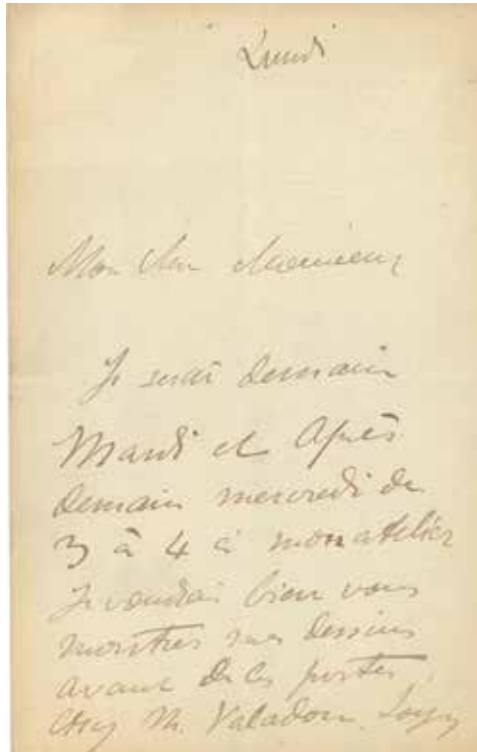 Lundi
Mon cher Monsieur
Je serai demain
Mardi et Après
demain mercredi de
3 à 4 à mon atelier
Je voudrais bien vous
montrer mes dessins
avant de les porter
chez M. Valadon. Soyez